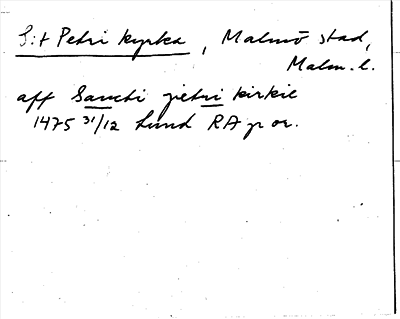 S:t Petri kyrka, Malmö stad,
Malm. l.
aff Sancti pietri kirkie
1475 31/12 Lund RA p or.